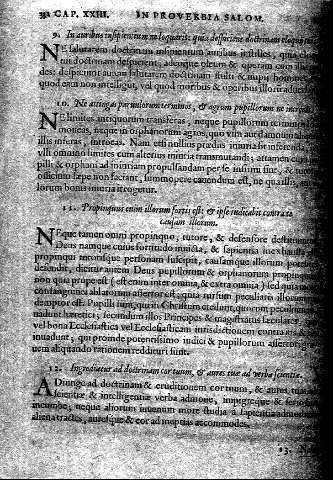 382 CAP. XXIII. IN PROVERBIA SALOM.
9. In auribus insipientium ne loquaris: quia despicient doctrinam eloquii
NE salutarem doctrinam insipientium auribus instilles, quia
tui doctrinam despicient, adeoque oleum & operam
des: despiciunt autem salutarem doctrinam stulti & impii homines
quod eam non intelligunt, vel quod moribus & operibus illorum
10. Ne attingas parvulorum terminos, & agrum pupillorum ne
NE limites antiquorum transferas, neque pupillorum terminos
moveas, neque in orphanorum agros, quo vim aut damnum
illis inferas, introeas. Nam etsi nullius prædiis iniuria sit inferenda,
ulli omnino limites cum alterius iniuria transmutandi; attamen cum
pilli & orphani ad iniuriam propulsandam per se infirmi sint, &
officio sæpe non fact, summopere cavendum est, ne quis
lorum bonis iniuria irrogetur.
11. Propinquus enim illorum fortis est: & ipse iudicabit contra te
causam illorum.
NEque tamen omni propinquo, tutore, & defensore
Deus namque cuius fortitudo invicta, & sapientia
propinqui illorum personam suscipit, causamque illorum
defendit, dicitur autem Deus pupillorum & orphanorum
non quia prope est (est enim inter omnia, & extra omnia) sed quia
contingentes ablatorum assertor est; quia rursum peculiariter illorum
demptor est. Pupilli sunt quoque Christum
vadunt hæretici, secundum illos Principes & magistratus sæculares
vel bona Ecclesiastica vel Ecclesiasticam iurisdictionem contra
invadunt, qui proinde potentissimo iudici & pupillorum assertori
nem aliquando rationem reddituri sunt.
12. Ingrediatur ad doctrinam cor tuum, & aures tuæ ad verba scientiæ.
ADiunge ad doctrinam & eruditionem cor tuum, & aures tuas
scientiæ & intelligentiæ verba admove, impigreque &
incumbe, neque aliorum iuvenum more studia à sapientia
aliena tractes, auresque & cor ad ineptias accommodes.
13.